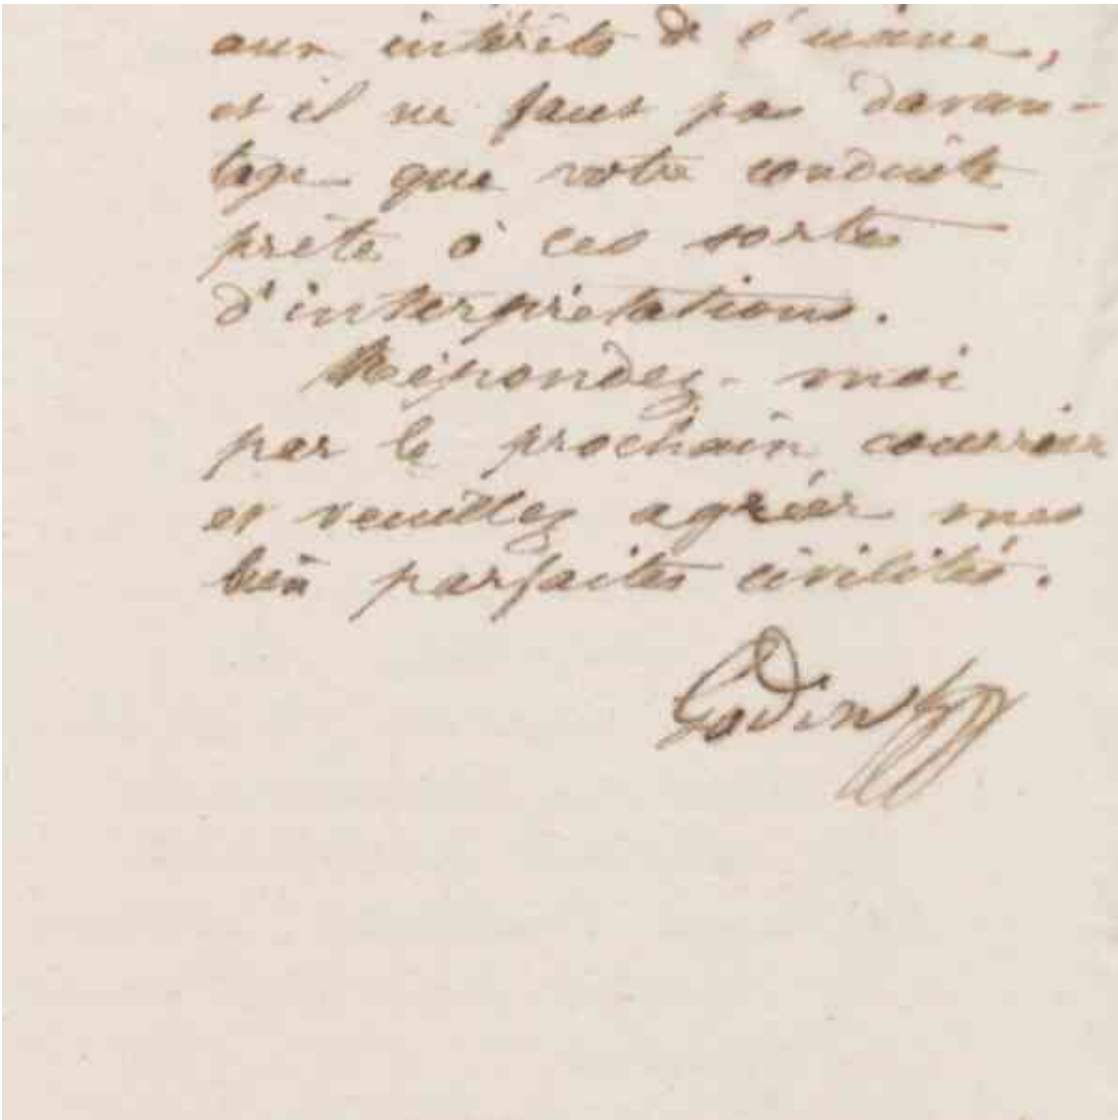 aux intérêts de l'usine,
et il ne faut pas davan-
tage que votre conduite
prête à ces sortes
d'interprétations.
Répondez-moi
par le prochain courrier
et veuillez agréer mes
bien parfaites civilités.
Godin